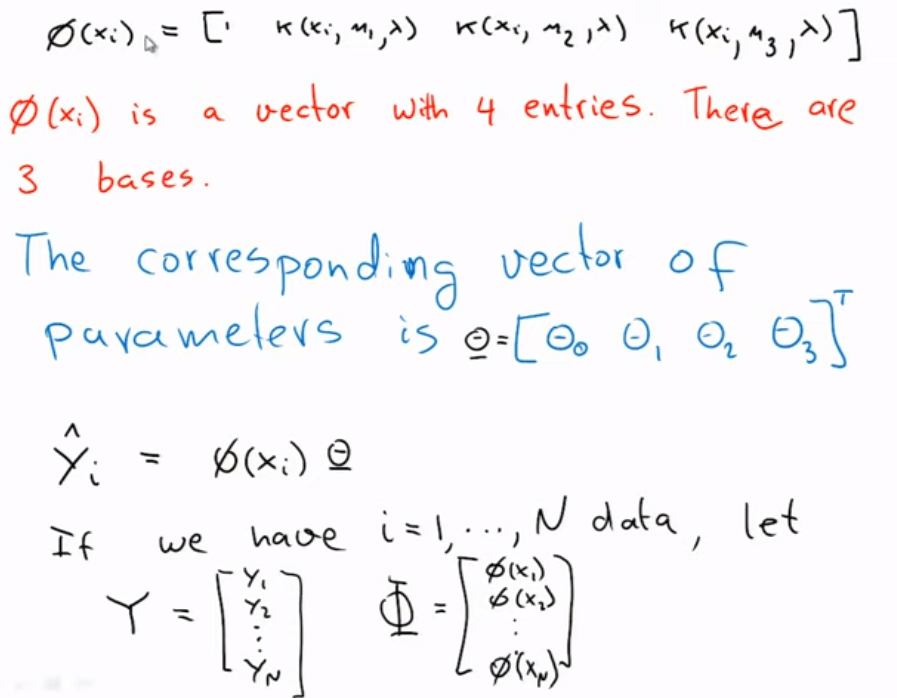 ϕ(xᵢ) = [1 κ(xᵢ, μ₁, λ) κ(xᵢ, μ₂, λ) κ(xᵢ, μ₃, λ)]
ϕ(xᵢ) is a vector with 4 entries. There are
3 bases.
The corresponding vector of
parameters is θ = [θ₀ θ₁ θ₂ θ₃]ᵀ
Ŷᵢ = ϕ(xᵢ) θ
If we have i = 1, ..., N data, let
Y = [Y₁ Y₂ ⋮ Y_N] Φ = [ϕ(x₁) ϕ(x₂) ⋮ ϕ(x_N)]